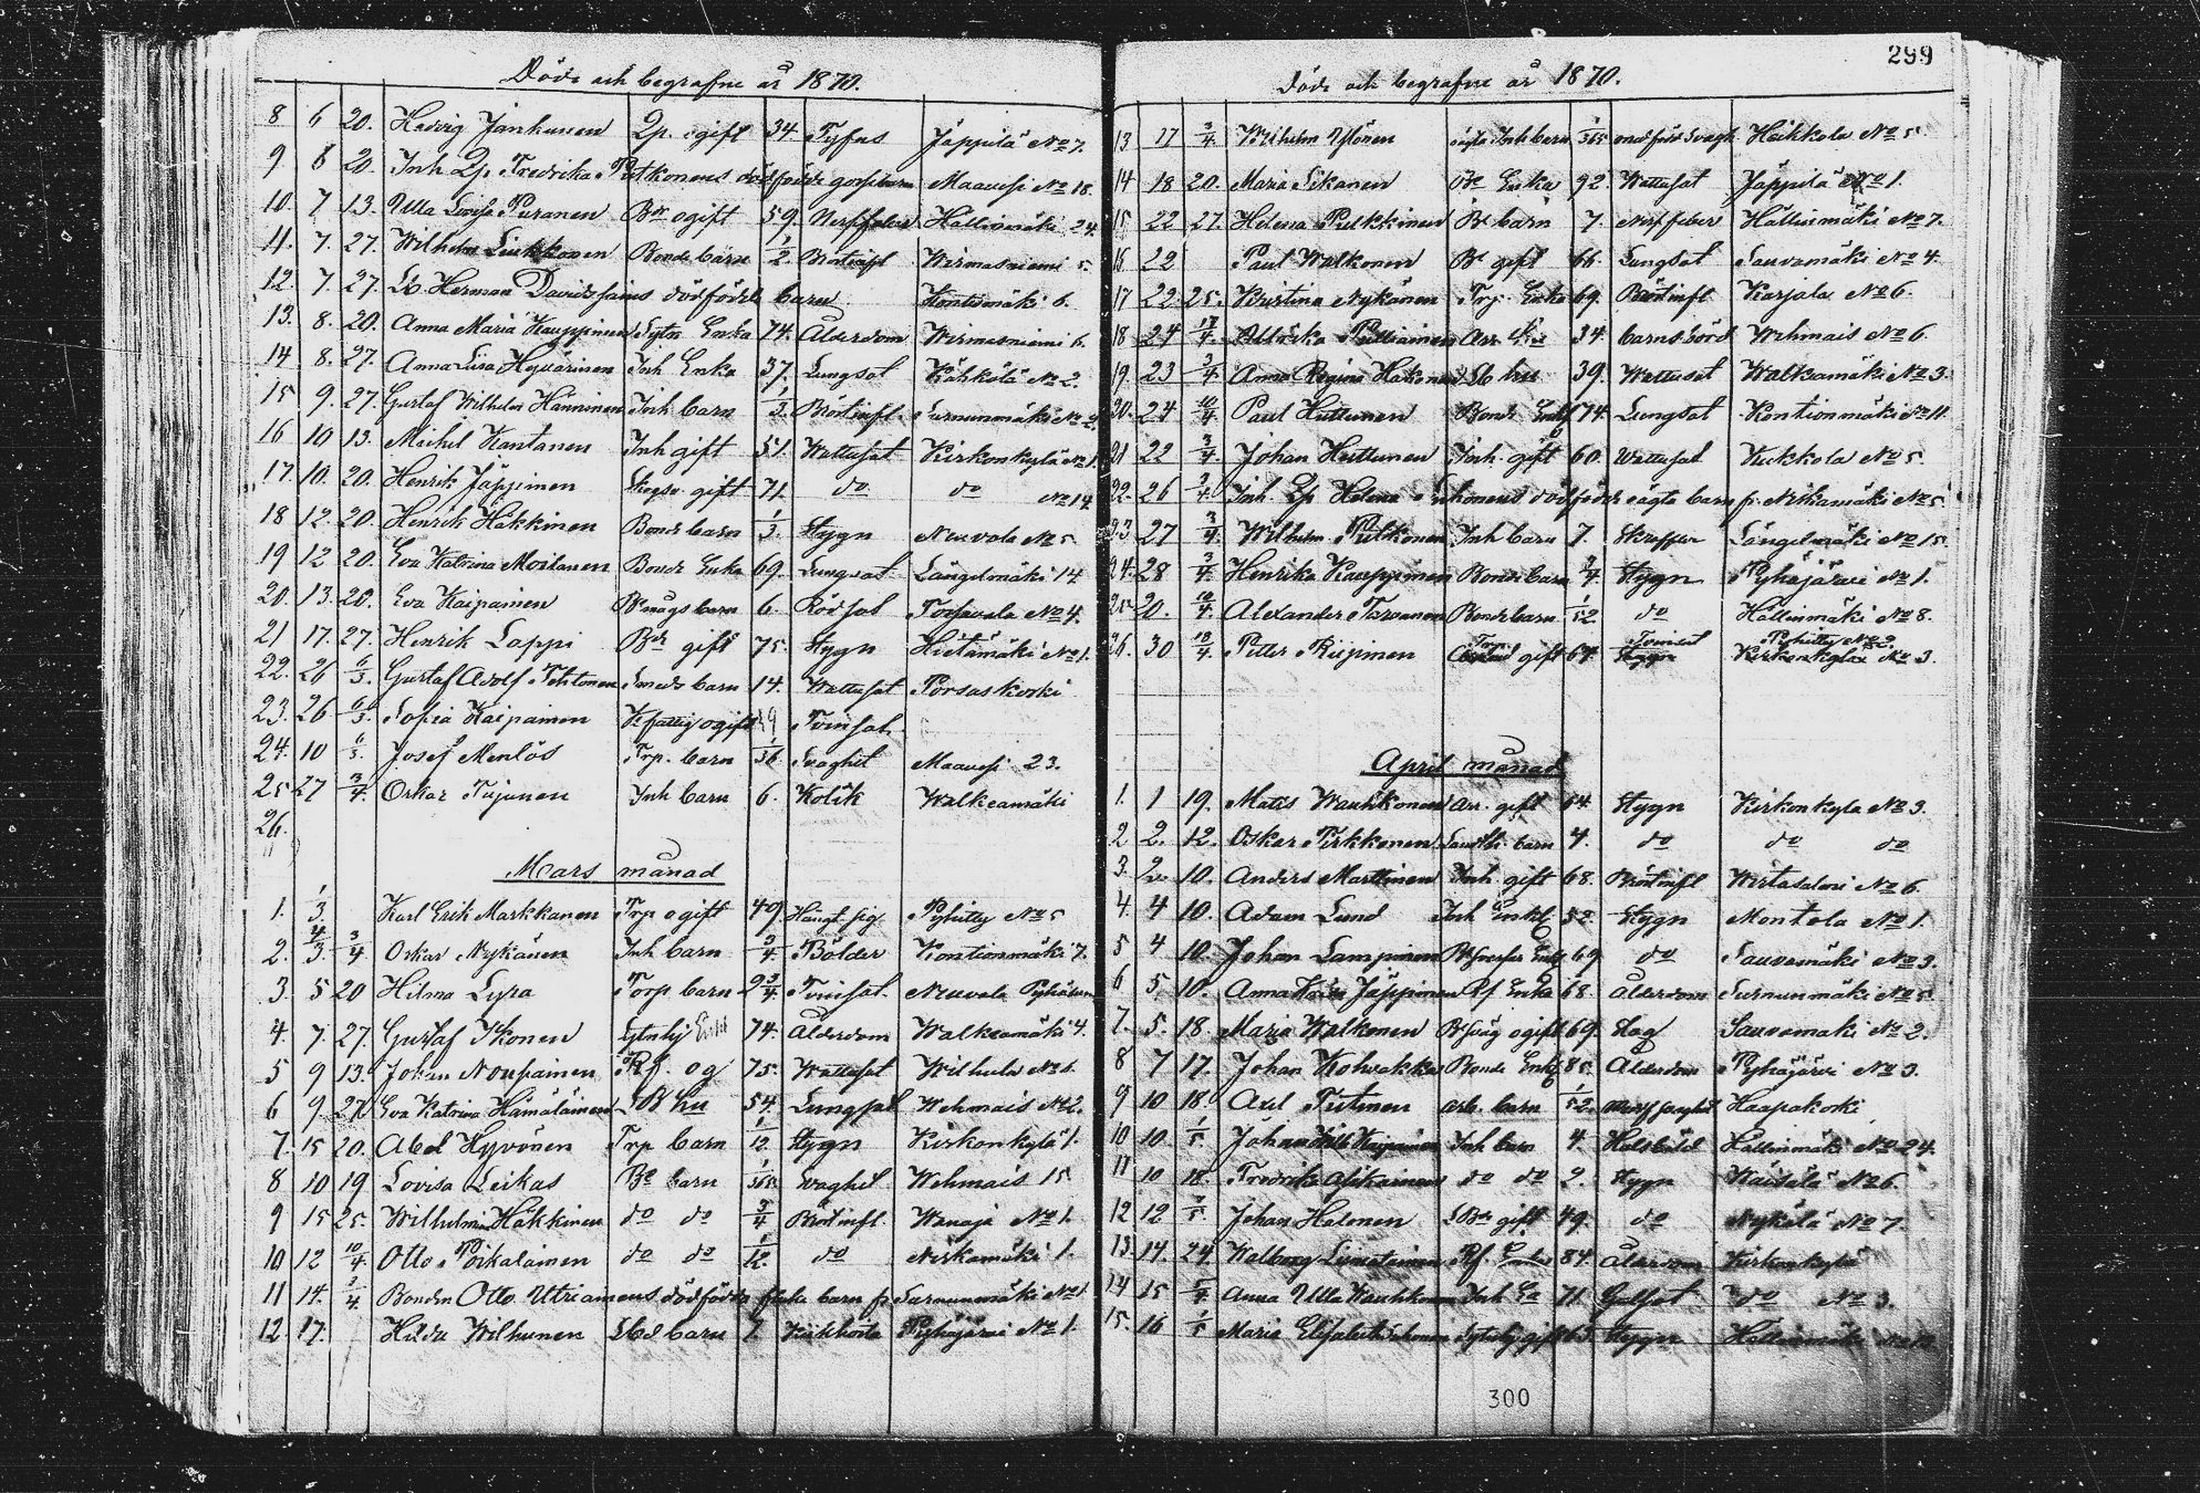 Döde och begrafne år 1870.
8 6 20. Hedvig Jankunen Qp. ogift 34. Tyfus Jäppilä No 7.
9 8 20. Inh Qp. Fredrika Putkonens dödfödde gossebarn Maavesi No 18.
10. 7 13. Ulla Lovisa Puranen Bdr ogift 59. Nerffeber Hällinmäki 24.
11. 7. 27. Wilhelm Liukkonen Bonde barn 1/2. Bröstinfl Wirmasniemi 5.
12. 7. 27. Lb. Herman Davidssains dödfödde barn Kontiomäki 6.
13. 8. 20. Anna Maria Kauppinen Sytn Enka 74. Ålderdom Wirmasniemi 6.
14 8. 27. Anna Lisa Hyvärinen Inh Enka 37. Lungsot Kähkölä No 2.
15 9. 27. Gustaf Wilhelm Hänninen Inh barn Bröstinfl. Surnunmäki No
16 10 13. Michel Kantanen Inh gift 51. Wattusot Kirkonkylä No 1
17. 10. 20. Henrik Jäppinen gift 71. do do No 14
18 12. 20. Henrik Häkkinen Bonde barn 1/3. Stygn Neuvola No 5
19 12 20. Eva Katrina Moilanen Bonde Enka 69. Lungsot Längelmäki 14
20. 13. 20. Eva Kaipainen Bmågs barn 6. Rödsot No 4.
21 17. 27. Henrik Lappi Bdr gift 75. Stygn Hietämäki No 1.
22. 26 6/3. Gustaf Adolf Tihtonen Smeds barn 14. Wattusot Porsaskoski
23. 26 6/3. Sofia Kaipainen ogift Tvinsot
24. 10 6/3. Josef Menlös Trp. barn Svaghet Maavesi 23.
25 27 3/4. Oskar Tujunen Inh barn 6. Kolik Walkeamäki
26.
Mars månad
1. 1/3. Karl Erik Markkanen Trp ogift 49. Hängt sig. Pyhitty No 5
2. 4/3. 3/4 Oskar Nykänen Inh barn 3/4 Bölder Kontionmäki 7.
3. 5 20 Hilma Lyra Torp barn 2 3/4. Tvinsot. Neuvola
4. 7. 27. Gustaf Ikonen 74. Ålderdom Walkeamäki 4.
5 9 13. Johan Noupainen Rf. og 75. Wattusot Wilhula No 1.
6 9. 27. Eva Katrina Hämäläinen LB hu 54. Lungsot Wehmais No 2.
7. 15 20. Abel Hyvönen Trp barn 1/12. Stygn Kirkonkylä 1.
8 10 19 Lovisa Leikas Be barn 1/365. Svaghet Wehmais 15
9 15 25. Wilhelmina Häkkinen do do 3/4 Bröstinfl. Wanaja No 1.
10 12 10/4. Otto Poikalainen do do 1/12. do Niskamäki 1.
11 14. 3/4. Bonden Otto Utriainens dödfödda flicka barn fr Surnunmäki No 1
12. 17. Hilda Wilhunen barn 7. Kikhosta Pyhäjärvi No 1.
299
Döde och begrafne år 1870.
13 17 3/4. Wilhelm Ylönen oägta Inh barn 1/365 Häkkola No 5.
14 18 20. Maria Sikanen Be Enka 92. Wattusot Jäppilä No 1.
15 22 27. Helena Pulkkinen Be barn 7. Nerffeber Hällinmäki No 7.
16 22 Paul Walkonen Be gift 66. Lungsot Sauvamäki No 4.
17 22. 25. Kristina Nykänen Trp. Enka 69. Bröstinfl Karjala No 6.
18 24 17/4. Ulrika Pulliainen 34. barnsbörd Wehmais No 6.
19. 23 3/4. Anna Regina Hakonen Lb hu 39. Wattusot Walkamäki No 3.
20. 24 10/4. Paul Huttunen Bonde Enkl 74. Lungsot Kontionmäki No 11.
21 22 3/4. Johan Huttunen Inh. gift 60. Wattusot Kukkola No 5.
22. 26 3/4. Inh Qp Helena dödfödde oägta barn fr Niskamäki No 5.
23 27 3/4. Wilhelm Pulkkonen Inh barn 7. Längelmäki No 15.
24. 28 3/4. Henrika Kauppinen Bonde barn 3/4. Stygn Pyhäjärvi No 1.
25. 20. 10/4. Alexander Tarvanen Bonde barn 1/52 do Hällinmäki No 8.
26. 30 18/4. Petter Riipinen Trp gift 67. Tvinsot Pyhitty No 2
Kirkonkylä No 3.
April månad
1. 1 19. Mats Wauhkonen Arr. gift 64. Stygn Kirkonkyla No 3.
2 2. 12. Oskar Pirkkonen barn 4. do do do
3. 2. 10. Anders Marttinen Inh gift 68. Bröstinfl Wirtasalmi No 6.
4. 4 10. Adam Lund Inh Enkl 52. Stygn Montola No 1.
5 4 10. Johan Lampinen Enkl 69 do Sauvamäki No 3.
6 5. 10. Anna Jäppinen Rf Enka 68. Ålderdom Surnunmäki No 5.
7. 5. 18. Maria Walkonen ogift 69. Slag Sauvamaki No 2.
8 7 17. Johan Kohvakka Bonde Enkl 85. Ålderdom Pyhäjärvi No 3.
9 10 18. Axel Tiitinen Arb. barn 1/52. Haapakoski
10 10. 1/5. Johan Kaipainen Inh barn 4. Hällinmäki No 24.
11 10 18. Fredrika Asikainen do do 2. Stygn Väisälä No 6.
12 12 3/5. Johan Halonen LBde gift 49. do Nykälä No 7
13. 14. 24. Walborg Liimatainen Rf. 84. Ålderdom Kirkonkylä
14 15 Anna Ulla Wauhkonen Inh Ea 71 Gulsot do No 3.
15. 16 1/5 Maria Elisabeth gift 63. Stygn Hällinmäki
300